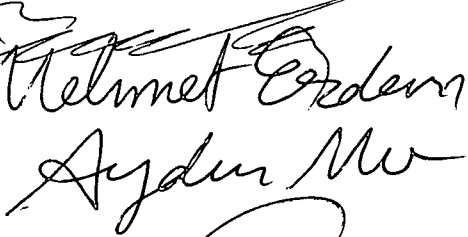 Mehmet Erdem
Aydın